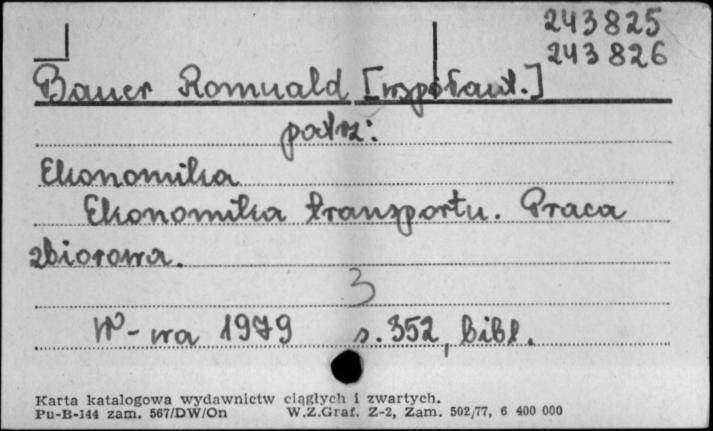 243825
243826
Bauer Romuald [współaut.]
patrz:
Ekonomika
Ekonomika transportu. Praca
zbiorowa.
3
W-wa 1979 s. 352, bibl.
Karta katalogowa wydawnictw ciągłych i zwartych.
Pu-B-144 zam. 567/DW/On W.Z.Graf. Z-2, Zam. 502/77, 6 400 000